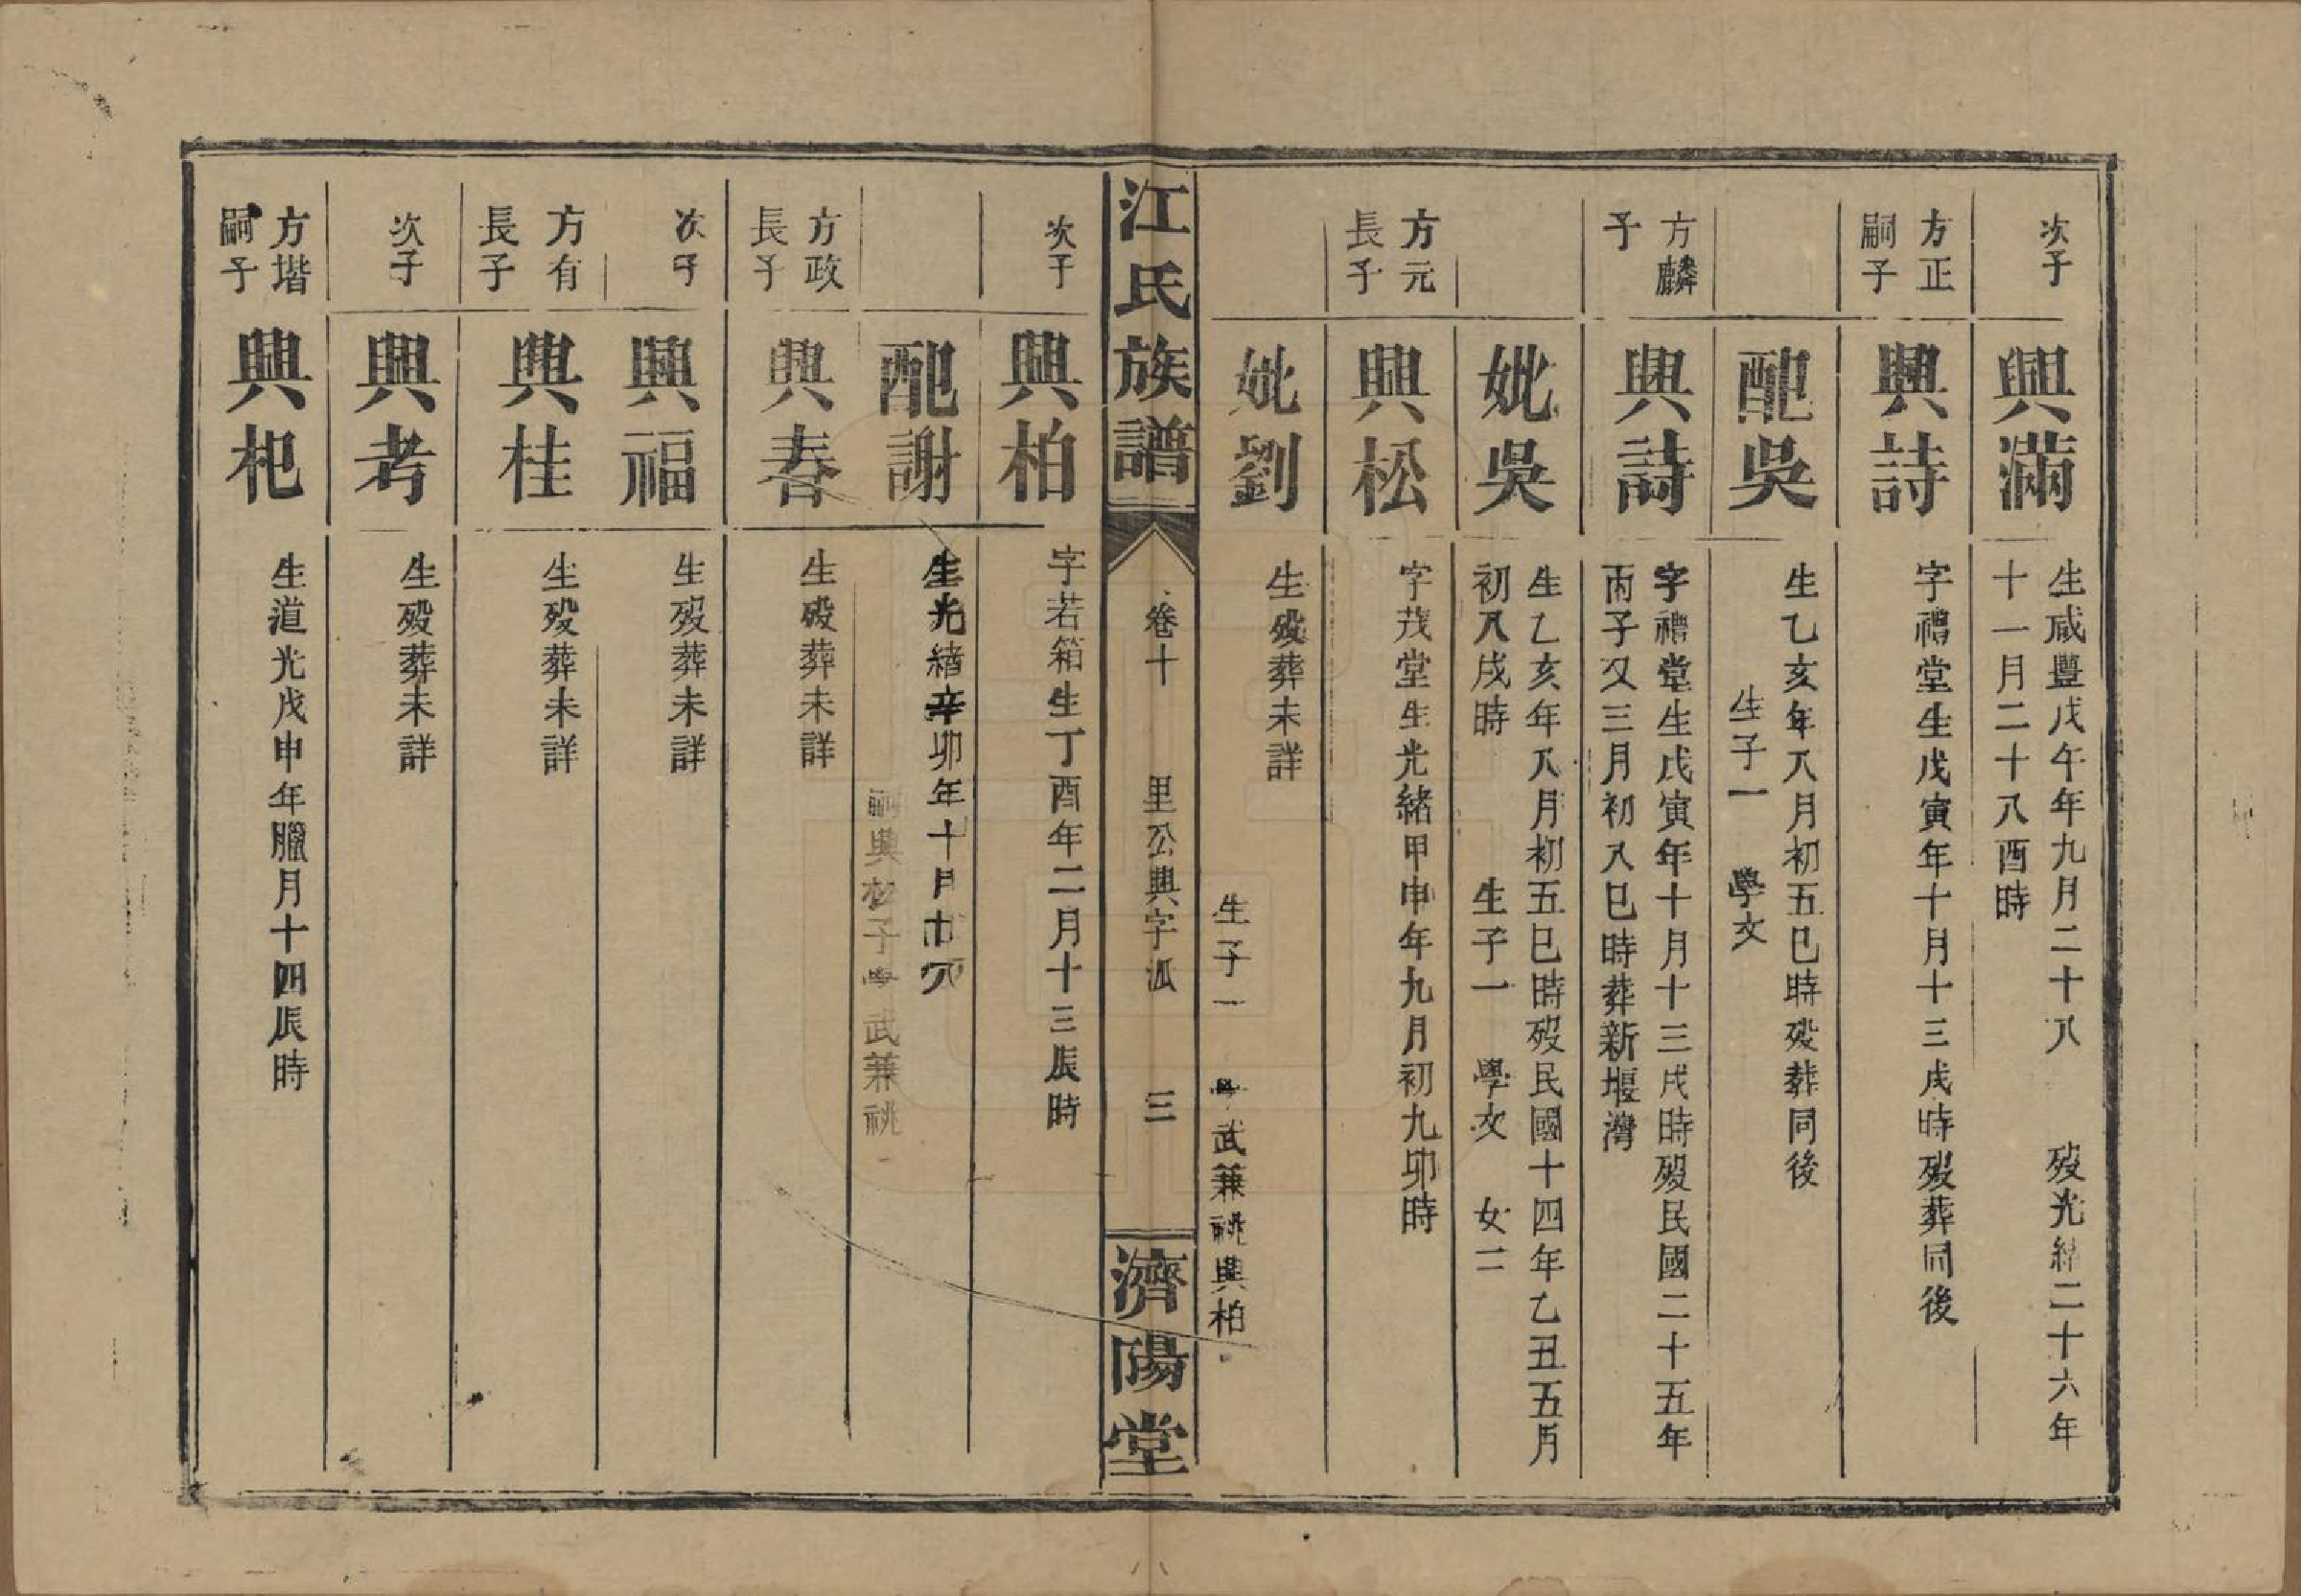 次子
興滿
生咸豐戊午年九月二十八 歿光緒二十六年
十一月二十八酉時
方正
嗣子
興詩
字禮堂生戊寅年十月十三戌時歿葬同後
配吳
生乙亥年八月初五巳時歿葬同後
生子一 學文
方麟
子
興詩
字禮堂生戊寅年十月十三戌時歿民國二十五年
丙子又三月初八巳時葬新堰灣
妣吳
生乙亥年八月初五巳時歿民國十四年乙丑五月
初八戌時 生子一 學文 女二
方元
長子
興松
字茂堂生光緒甲申年九月初九卯時
妣劉
生歿葬未詳
生子一 學武兼祧興柏
江氏族譜
卷十
里公興字派
三
濟陽堂
次子
興柏
字若箱生丁酉年二月十三辰時
配謝
生光緒辛卯年十月
嗣興松子學武兼祧
方政
長子
興春
生歿葬未詳
次子
興福
生歿葬未詳
方有
長子
興桂
生歿葬未詳
次子
興考
生歿葬未詳
方堦
嗣子
興杞
生道光戊申年臘月十四辰時